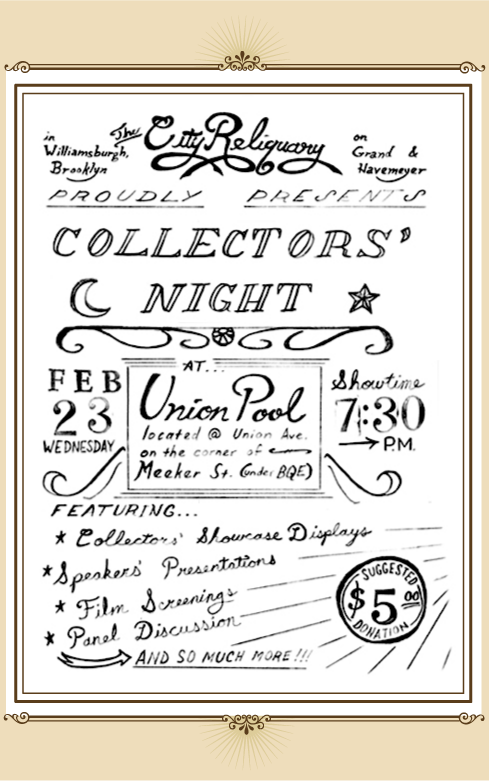 in
Williamsburgh,
Brooklyn
The City Reliquary
on
Grand &
Havemeyer
PROUDLY PRESENTS
COLLECTORS'
NIGHT
FEB
23
WEDNESDAY
AT...
Union Pool
located @ Union Ave.
on the corner of
Meeker St. (under BQE)
Showtime
7:30
P.M.
FEATURING...
* Collectors' Showcase Displays
* Speakers' Presentations
* Film Screenings
* Panel Discussion
AND SO MUCH MORE!!!
SUGGESTED
$5.00
DONATION